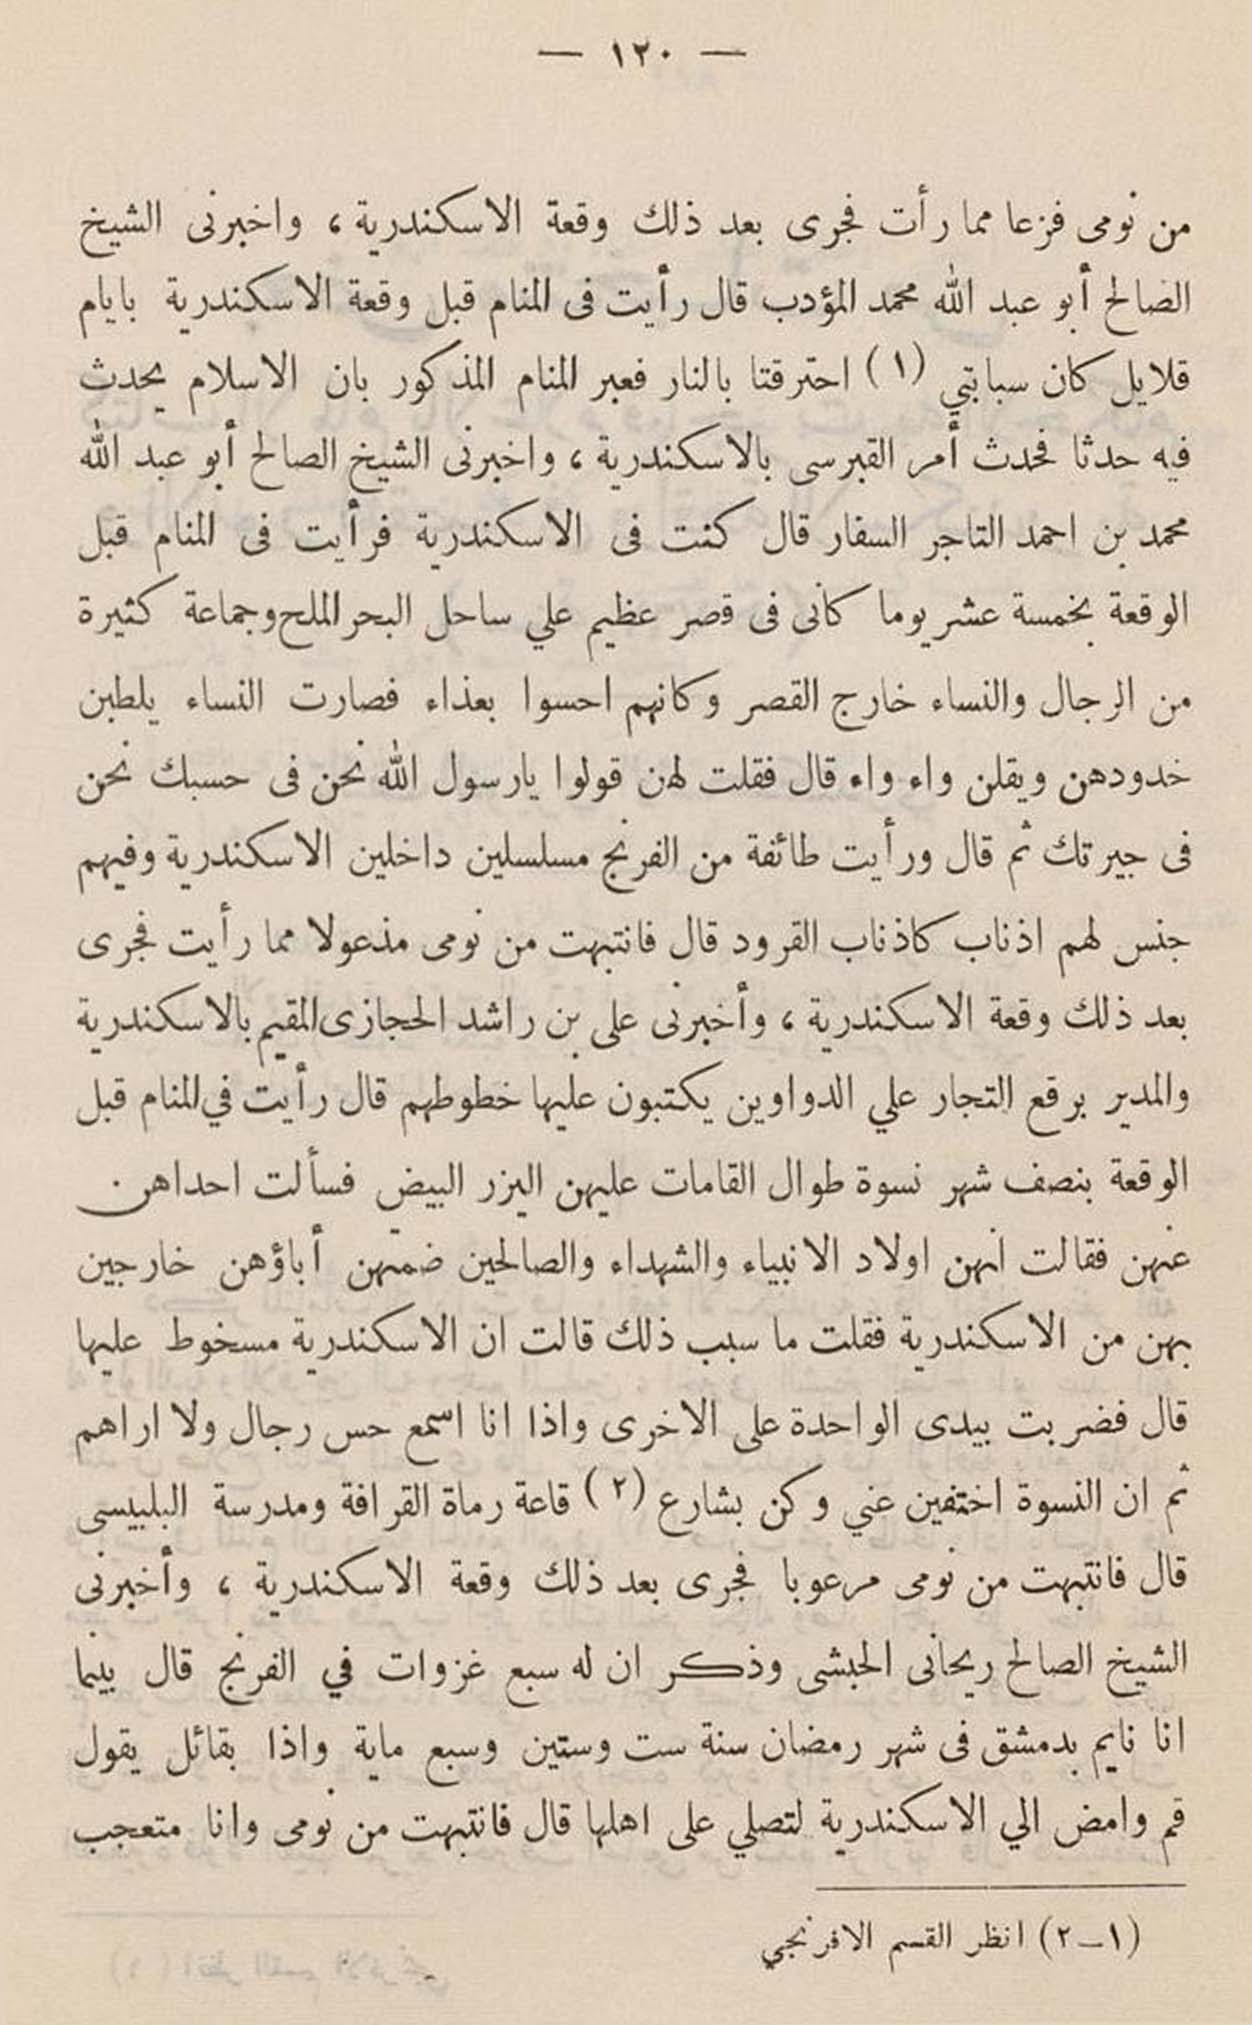 — ١٢٠ —
من نومى فزعا مما رأت فجرى بعد ذلك وقعة الاسكندرية ، واخبرنى الشيخ
الصالح أبو عبد الله محمد المؤدب قال رأيت فى المنام قبل وقعة الاسكندرية بايام
قلايل كان سبابتي (١) احترقتا بالنار فعبر المنام المذكور بان الاسلام يحدث
فيه حدثا فحدث أمر القبرسى بالاسكندرية ، واخبرنى الشيخ الصالح أبو عبد الله
محمد بن احمد التاجر السفار قال كنت فى الاسكندرية فرأيت فى المنام قبل
الوقعة بخمسة عشر يوما كأنى فى قصر عظيم علي ساحل البحر الملح وجماعة كثيرة
من الرجال والنساء خارج القصر وكانهم احسوا بعذاء فصارت النساء يلطبن
خدودهن ويقلن واء واء قال فقلت لهن قولوا يارسول الله نحن فى حسبك نحن
فى جيرتك ثم قال ورأيت طائفة من الفرنج مسلسلين داخلين الاسكندرية وفيهم
جنس لهم اذناب كاذناب القرود قال فانتبهت من نومى مذعولا مما رأيت فجرى
بعد ذلك وقعة الاسكندرية ، وأخبرنى على بن راشد الحجازى المقيم بالاسكندرية
والمدير برقع التجار علي الدواوين يكتبون عليها خطوطهم قال رأيت في المنام قبل
الوقعة بنصف شهر نسوة طوال القامات عليهن اليزر البيض فسألت احداهن
عنهن فقالت انهن اولاد الانبياء والشهداء والصالحين ضمتهن أباؤهن خارجين
بهن من الاسكندرية فقلت ما سبب ذلك قالت ان الاسكندرية مسخوط عليها
قال فضربت بيدى الواحدة على الاخرى واذا انا اسمع حس رجال ولا اراهم
ثم ان النسوة اختفين عني وكن بشارع (٢) قاعة رماة القرافة ومدرسة البلبيسى
قال فانتبهت من نومى مرعوبا فجرى بعد ذلك وقعة الاسكندرية ، وأخبرنى
الشيخ الصالح ريحانى الحبشى وذكر ان له سبع غزوات في الفرنج قال بينما
انا نايم بدمشق فى شهر رمضان سنة ست وستين وسبع ماية واذا بقائل يقول
قم وامض الي الاسكندرية لتصلي على اهلها قال فانتبهت من نومى وانا متعجب
(١–٢) انظر القسم الافرنجي